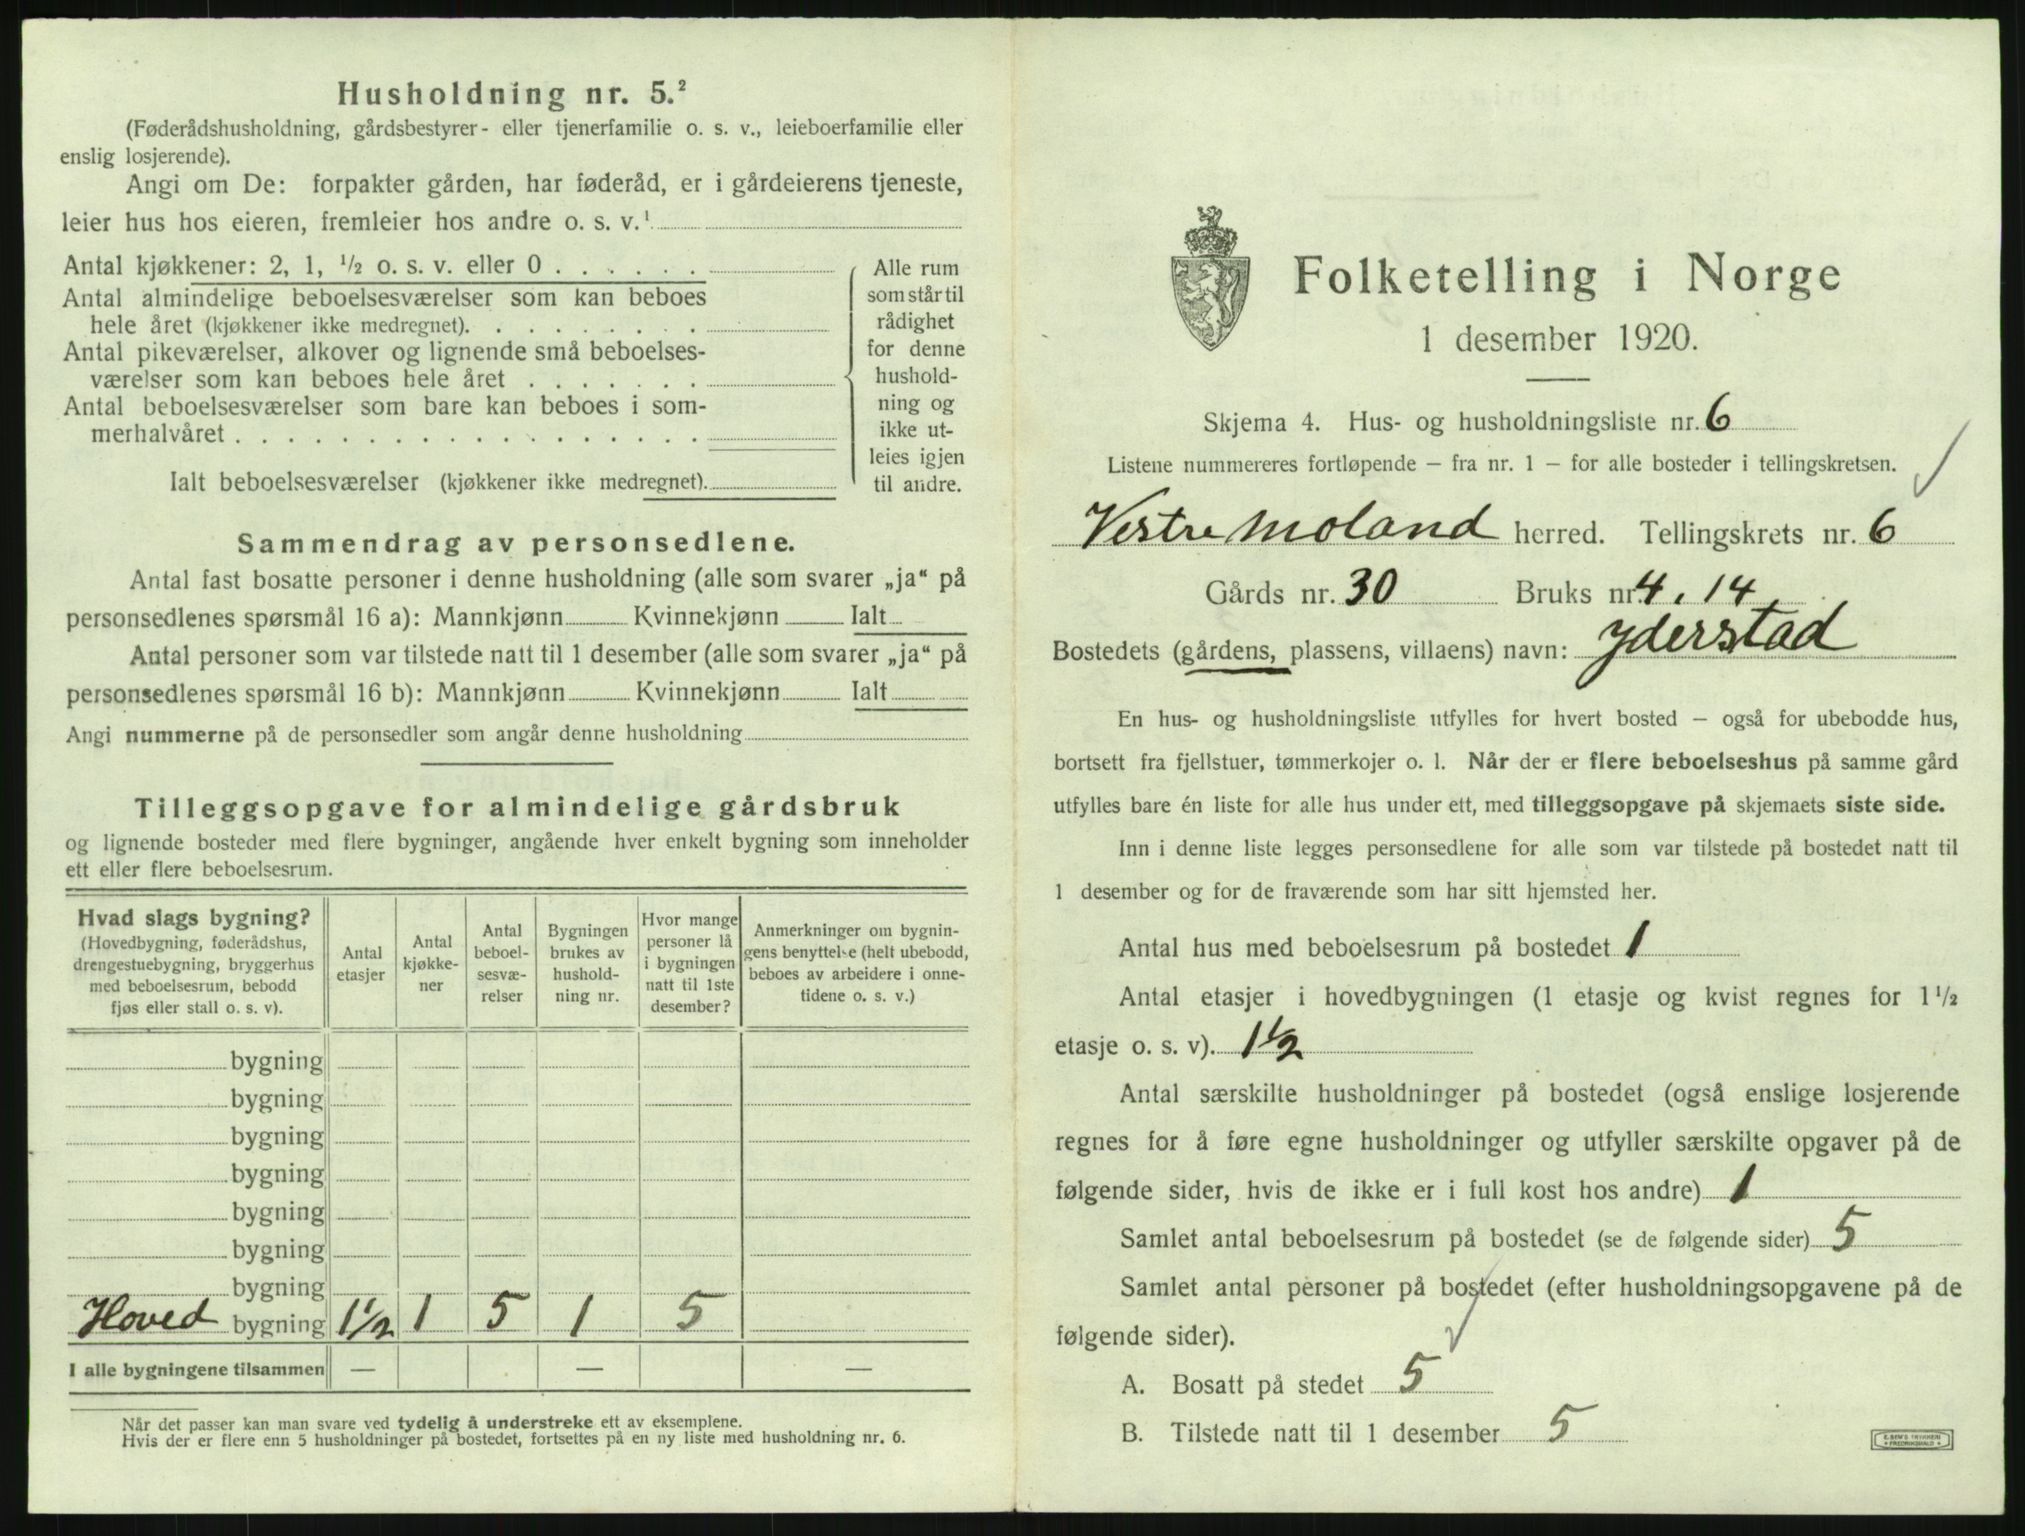 Husholdning nr. 5.²
(Føderådshusholdning, gårdsbestyrer- eller tjenerfamilie o. s. v., leieboerfamilie eller
enslig losjerende).
Angi om De: forpakter gården, har føderåd, er i gårdeierens tjeneste,
leier hus hos eieren, fremleier hos andre o. s. v.¹
Antal kjøkkener: 2, 1, ½ o. s. v. eller 0 . . . . . .
Antal almindelige beboelsesværelser som kan beboes
hele året (kjøkkener ikke medregnet). . . . . . . . .
Antal pikeværelser, alkover og lignende små beboelses-
værelser som kan beboes hele året . . . . . . .
Antal beboelsesværelser som bare kan beboes i som-
merhalvåret . . . . . . . . . . . . . . . . . .
Ialt beboelsesværelser (kjøkkener ikke medregnet).
Alle rum
som står til
rådighet
for denne
hushold-
ning og
ikke ut-
leies igjen
til andre.
Sammendrag av personsedlene.
Antal fast bosatte personer i denne husholdning (alle som svarer „ja“ på
personsedlenes spørsmål 16 a): Mannkjønn Kvinnekjønn Ialt
Antal personer som var tilstede natt til 1 desember (alle som svarer „ja“ på
personsedlenes spørsmål 16 b): Mannkjønn Kvinnekjønn Ialt
Angi nummerne på de personsedler som angår denne husholdning
Tilleggsopgave for almindelige gårdsbruk
og lignende bosteder med flere bygninger, angående hver enkelt bygning som inneholder
ett eller flere beboelsesrum.
Hvad slags bygning?
(Hovedbygning, føderådshus,
drengestuebygning, bryggerhus
med beboelsesrum, bebodd
fjøs eller stall o. s. v).
Antal
etasjer
Antal
kjøkke-
ner
Antal
beboel-
sesvæ-
relser
Bygningen
brukes av
hushold-
ning nr.
Hvor mange
personer lå
i bygningen
natt til 1ste
desember?
Anmerkninger om bygnin-
gens benyttelse (helt ubebodd,
beboes av arbeidere i onne-
tidene o. s. v.)
bygning
bygning
bygning
bygning
bygning
bygning
bygning
Hoved bygning 1½ 1 5 1 5
I alle bygningene tilsammen — — —
Når det passer kan man svare ved tydelig å understreke ett av eksemplene.
Hvis der er flere enn 5 husholdninger på bostedet, fortsettes på en ny liste med husholdning nr. 6.
Folketelling i Norge
1 desember 1920.
Skjema 4. Hus- og husholdningsliste nr. 6
Listene nummereres fortløpende – fra nr. 1 – for alle bosteder i tellingskretsen.
Vestre Moland herred. Tellingskrets nr. 6
Gårds nr. 30 Bruks nr. 4, 14
Bostedets (gårdens, plassens, villaens) navn: Yderstad
En hus- og husholdningsliste utfylles for hvert bosted – også for ubebodde hus,
bortsett fra fjellstuer, tømmerkojer o. l. Når der er flere beboelseshus på samme gård
utfylles bare én liste for alle hus under ett, med tilleggsopgave på skjemaets siste side.
Inn i denne liste legges personsedlene for alle som var tilstede på bostedet natt til
1 desember og for de fraværende som har sitt hjemsted her.
Antal hus med beboelsesrum på bostedet 1
Antal etasjer i hovedbygningen (1 etasje og kvist regnes for 1½
etasje o. s. v). 1½
Antal særskilte husholdninger på bostedet (også enslige losjerende
regnes for å føre egne husholdninger og utfyller særskilte opgaver på de
følgende sider, hvis de ikke er i full kost hos andre) 1
Samlet antal beboelsesrum på bostedet (se de følgende sider) 5
Samlet antal personer på bostedet (efter husholdningsopgavene på de
følgende sider).
A. Bosatt på stedet 5
B. Tilstede natt til 1 desember 5
E. SEM'S TRYKKERI
FREDRIKSHALD